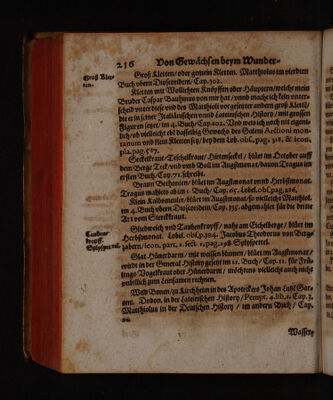 216 Von Gewächsen beym Wunder-
Groß Kletten/ oder gemein Kletten. Matthiolus im vierdten
Groß Klet-
ten.
Buch vbern Dioscoridem/ Cap. 102.
Kletten mit Wollichten Knöpffen oder Häuptern/ welche mein
Bruder Caspar Bauhinus von mir hat/ vnnd mache ich kein vnter-
scheid vnter diese vnd des Matthioli vorgesetzter andern groß Klett/
die er in seiner Italiänischen vnd Lateinischen History/ mit grossen
Figuren setzet/ im 4. Buch/ Cap. 102. Vnd weiß ich noch nit eigent-
lich/ ob vielleicht eb dasselbig Gewechs des Galeni Arctioni mon-
tanum vnd klein Kletten sey/ bey dem Lob. obs. pag. 318. & icon.
pla. pag. 587.
Seckelkraut/ Teschelkraut/ Hirtenseckel/ blüet im October auff
dem Berge Teck/ vnd vmb Boll im Augstmonat/ dauon Tragus im
ersten Buch/ Cap. 71. schreibt.
Braun Bethonien/ blüet im Augstmonat vnnd Herbstmonat.
Tragus im ersten Buch/ Cap. 65. Lob. obs. pag. 286.
Klein Kalbsauter/ blüet im Augstmonat/ so vielleicht Matthiol.
im 4. Buch vbern Dioscoridem/ Cap. 395. abgemahlet für die dritte
Art vom Sterckkraut.
Gliedweich vnd Taubenkropff/ nahe am Eichelberge/ blüet im
Tauben-
kropff.
Herbstmonat. Lobel. obs. p. 184. Jacobus Theodorus von Berg-
zabern/ icon, part. 2. sect. 1. pag. 298.
Glat Hünerdarm/ mit weissen blumen/ blüet im Augstmonat/
würdt in der General History gesetzt im 11. Buch/ Cap. 12. für
Vogelkraut oder Hünerdarm/ möchtens vielleicht auch nicht
vnbillich zum
zu Kirchheim in des Apoteckers Johan Lutz Gar-
ten. Dodon. in der Lateinischen History/ Pempt. 4. lib. 2. Cap. 3.
Matthiolus in der Deutschen History/ im andern Buch/ Cap.
Wasser-